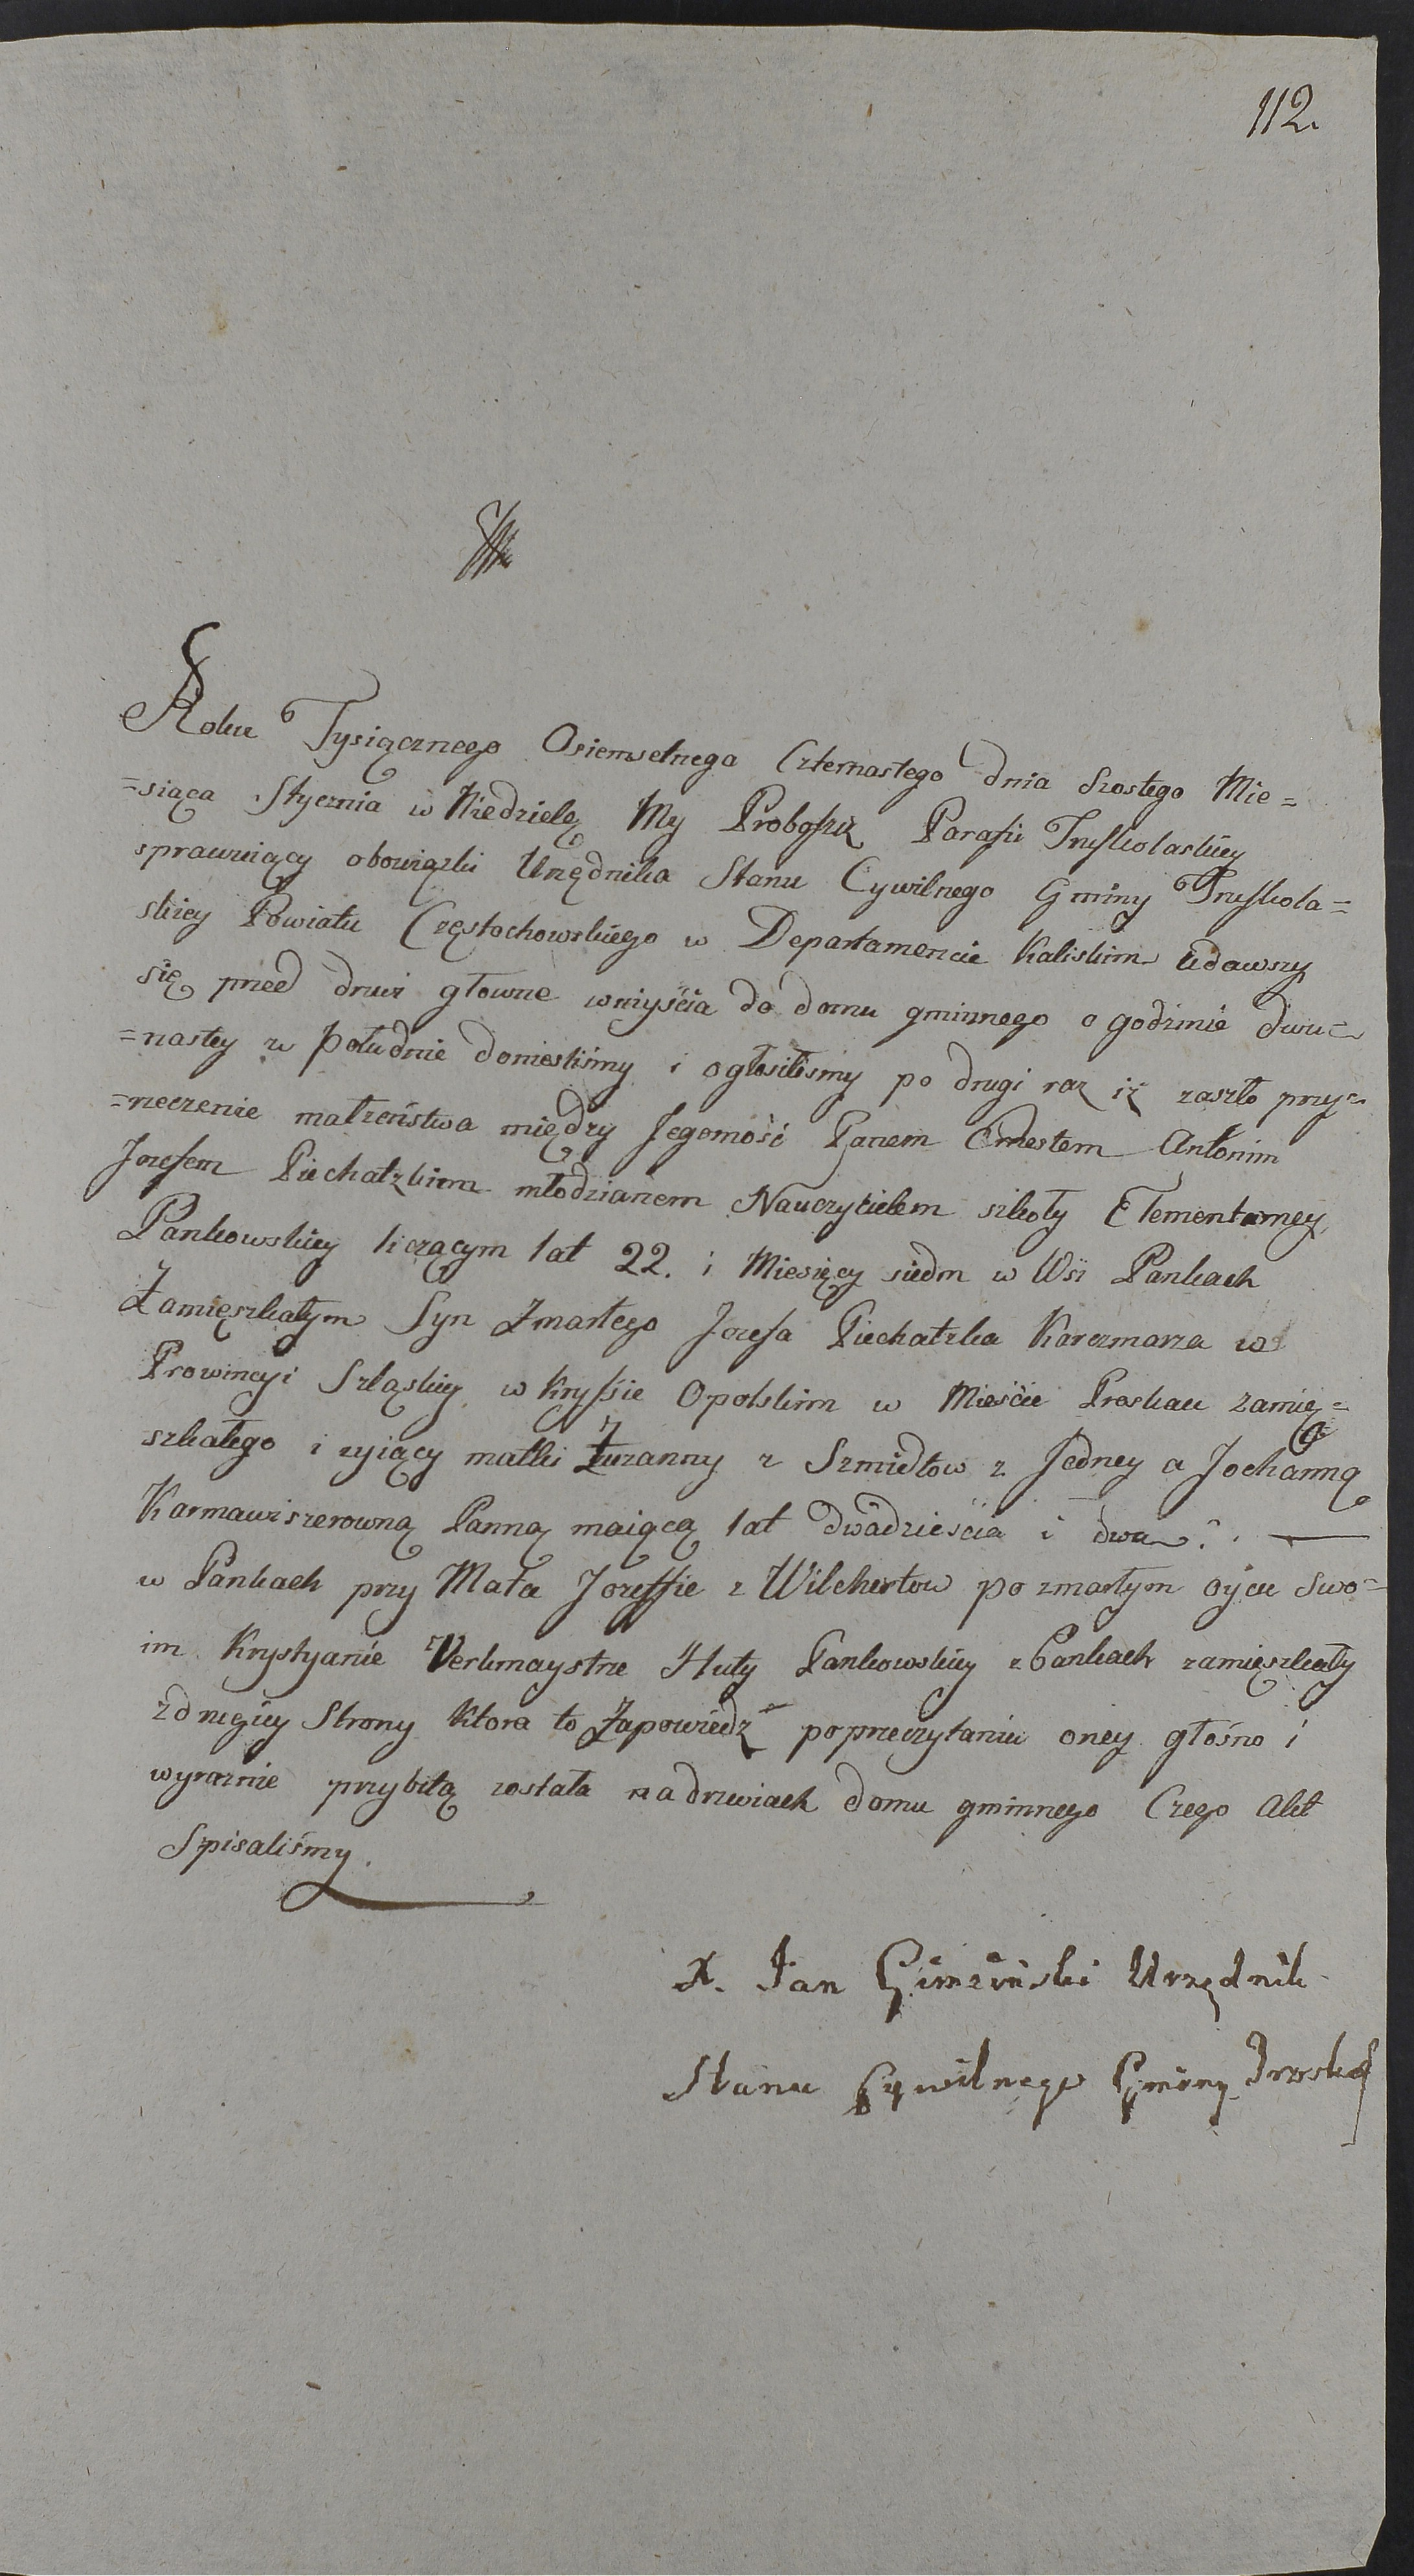 112.
Roku Tysiącznego Osiemsetnego Czternastego dnia Szostego Mie=
=siąca Stycznia w Niedzielę My Proboszcz Parafii Truskolaskiey
sprawuiący obowiązki Urzędnika Stanu Cywilnego Gminy Truskola=
skiey Powiatu Częstochowskiego w Departamencie Kaliskim udawszy
się przed drzwi głowne wniyścia do domu gminnego o godzinie dwu=
=nastey w południe doniesliśmy i ogłosiliśmy po drugi raz iż zaszło przy=
=rzeczenie małżeństwa między Jegomość Panem Ernestem Antonim
Jozefem Piechatzkim młodzianem Nauczycielem szkoły Elementarney
Pankowskiey liczącym lat 22. i Miesięcy siedm w Wsi Pankach
Zamięszkałym Syn Zmarłego Jozefa Piechatzka Karczmarza w
Prowincyi Szląskiey w Kryśsie Opolskim w Mieście Proskau zamię=
szkałego i zyiący matki Zuzanny z Szmidtow z Jedney a Jochanną
Karmawiszerowną Panną maiącą lat dwadzieścia i dwa.
w Pankach przy Matce Jozeffie z Wilchertow po zmarłym oycu swo=
im Krystyanie Verkmaystrze Huty Pankowskiey z Pankach zamięszkały
z drugiey Strony Ktora to Zapowiedź po przeczytaniu oney głośno i
wyraznie przybitą została na drzwiach domu gminnego Czego Akt
Spisaliśmy.
X. Jan Gimziński Urzędnik
Stanu Cywilnego Gminy Trusko